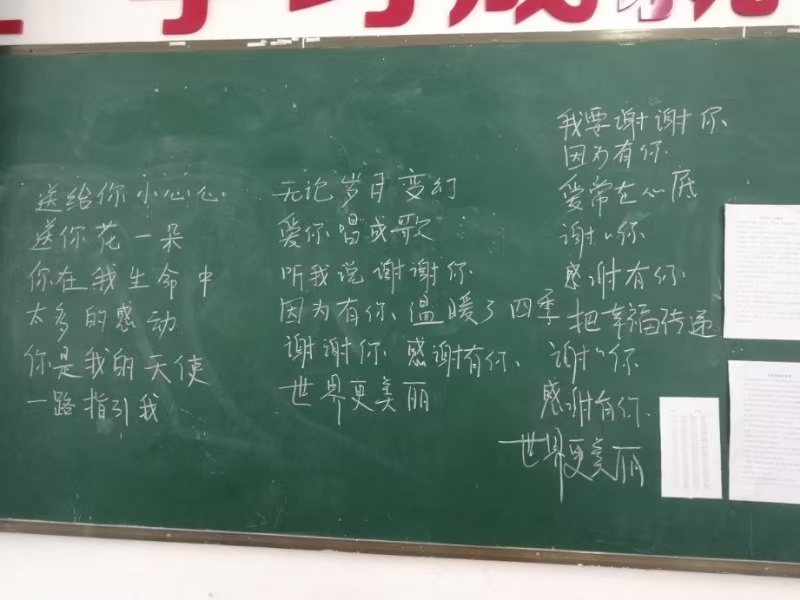 学习成就
送给你小心心
送你花一朵
你在我生命中
太多的感动
你是我的天使
一路指引我
无论岁月变幻
爱你唱成歌
听我说谢谢你
因为有你、温暖了四季
谢谢你 感谢有你、
世界更美丽
我要谢谢你
因为有你
爱常在心底
谢〃你
感谢有你
把幸福传递
谢〃你
感谢有你.
世界更美丽